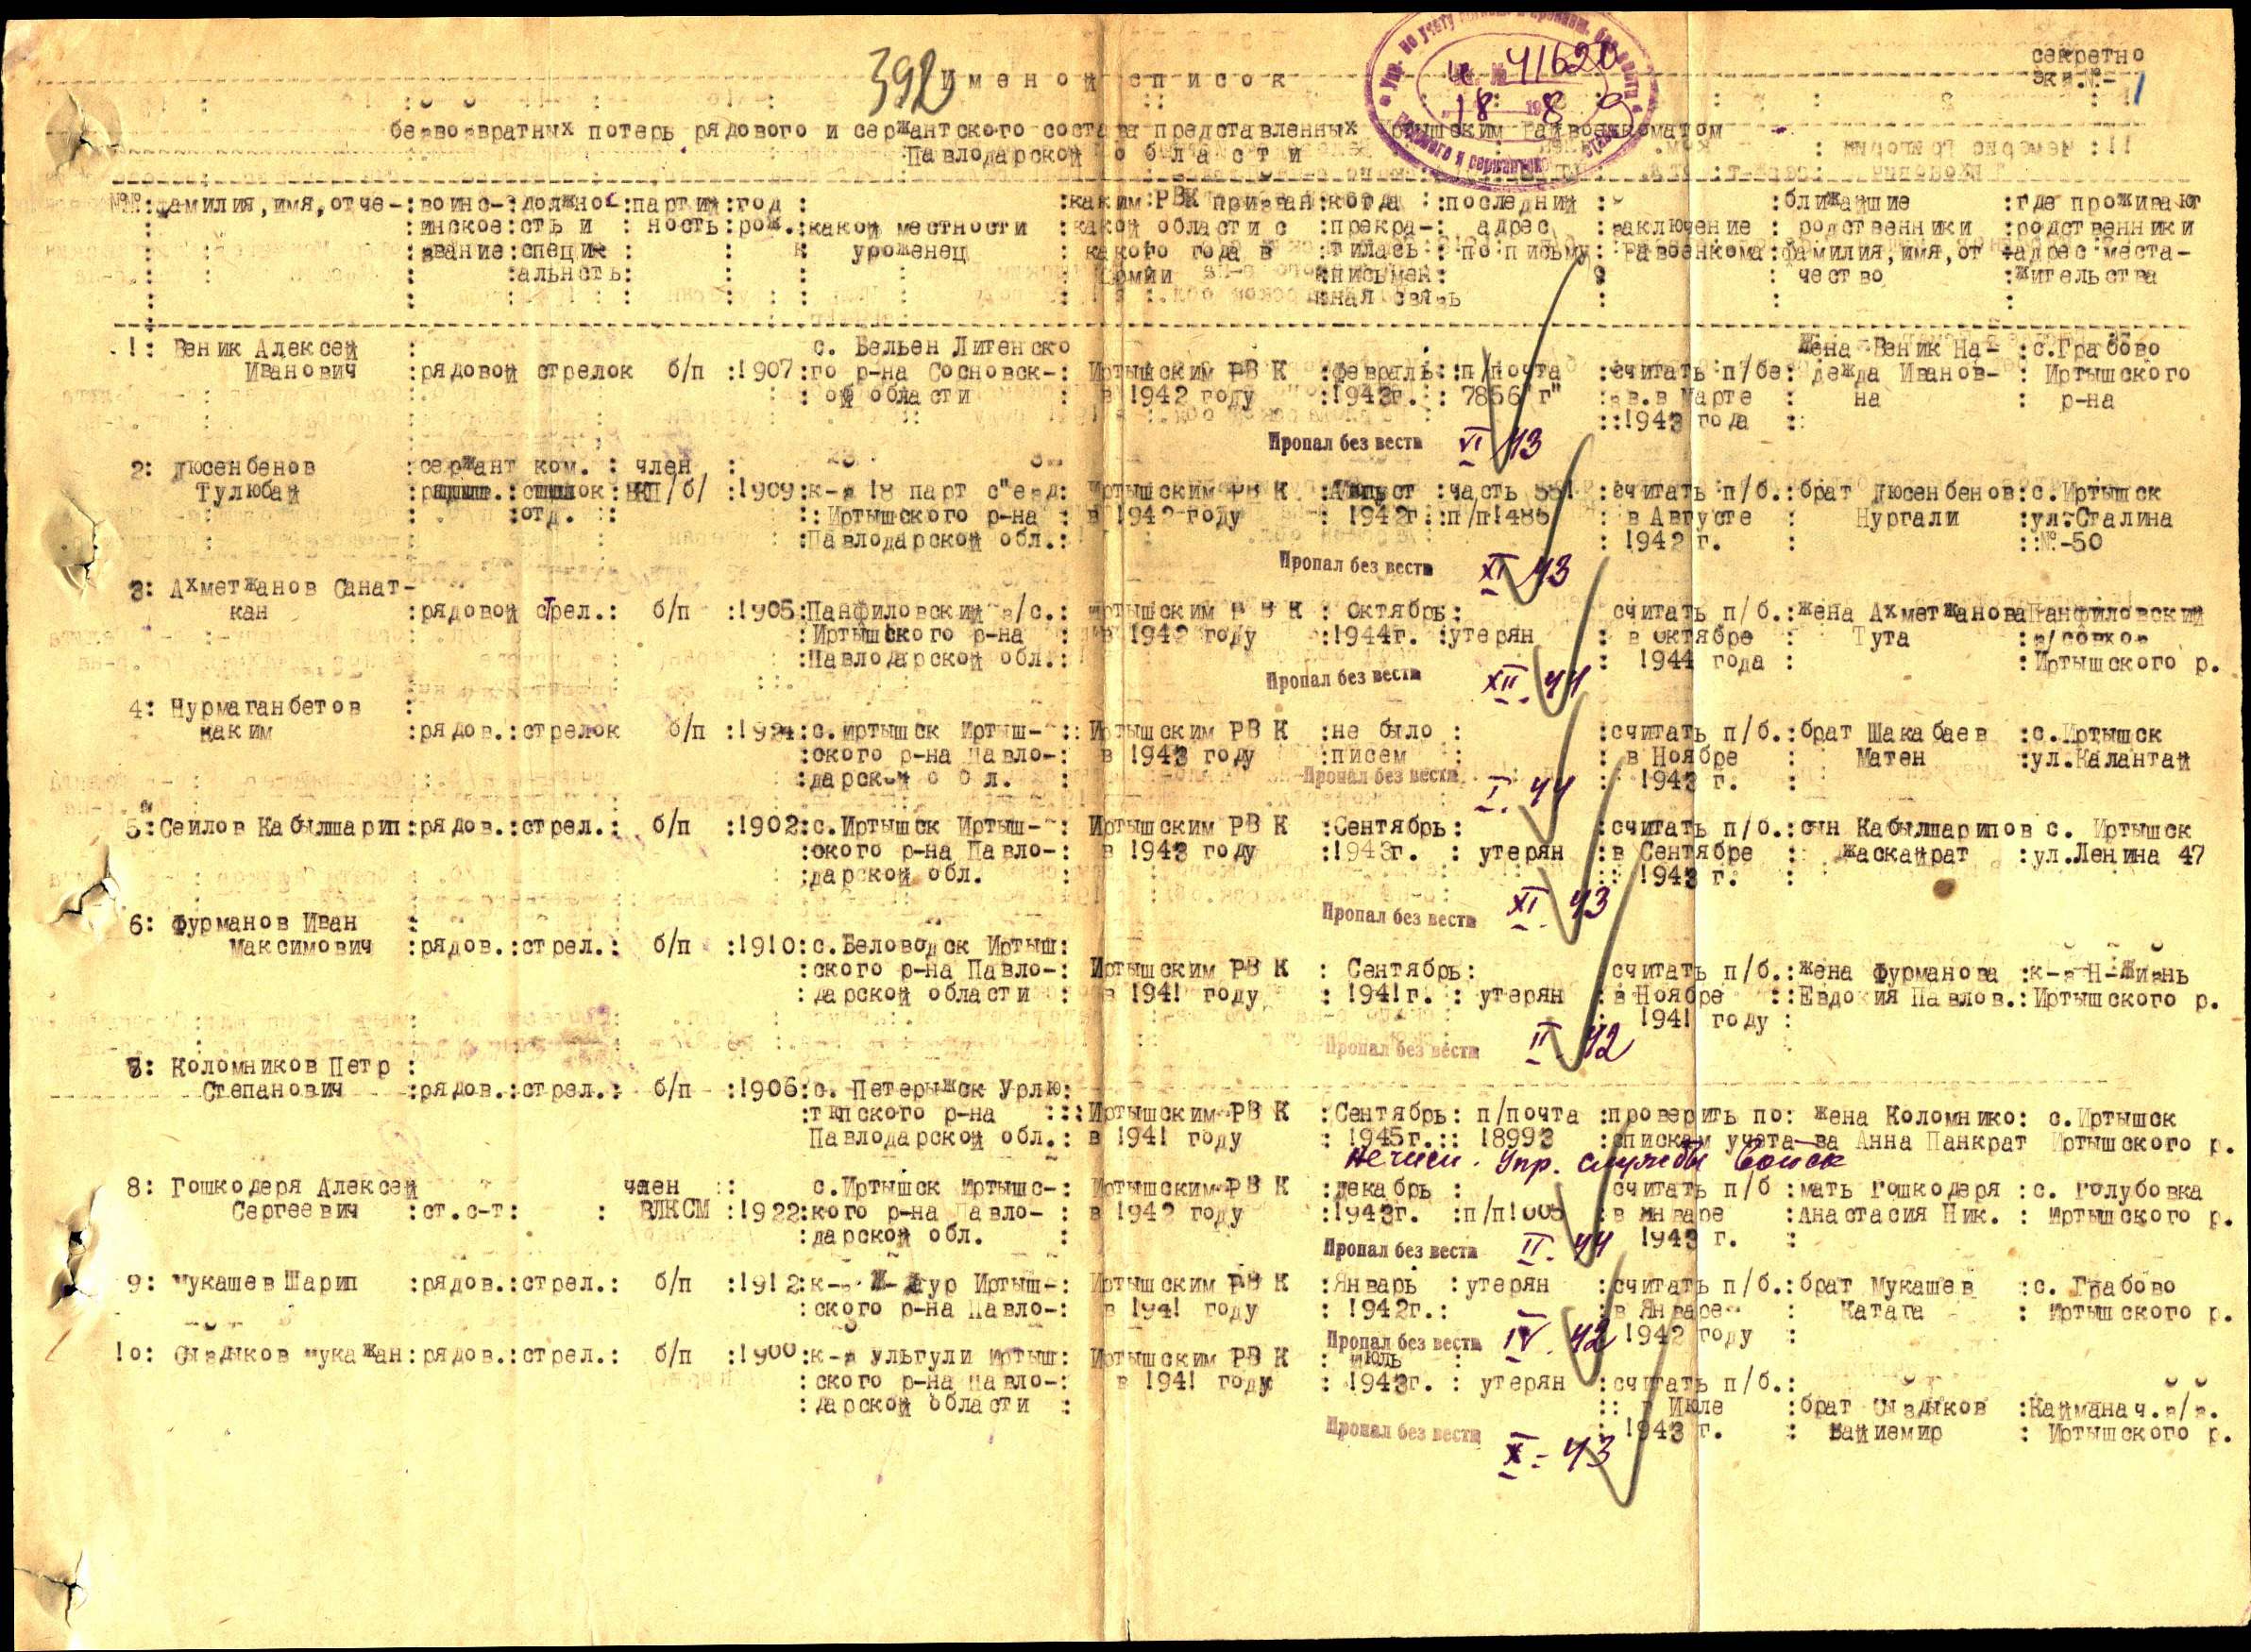 секретно
экз.№-1
392
Именой список
41620
18 8 9
безвозвратных потерь рядового и сержантского состава представленных Иртышским райвоенкоматом
Павлодарской области
№№:фамилия,имя,отче-:воинс-:должно-:партий:год : :каким РВК призван:когда :последний : :ближайшие :где проживают
:инское:сть и : ность:рож.:какой местности :какой области с :прекра-: адрес :заключение : родственники :родственники
:звание:специ : : уроженец : какого года в :тилась :по письму: Равоенкома:фамилия,имя,от :адрес места-
:альнсть: армии письмен: чество :жительства
ная связь
1: Веник Алексей : с. Бельен Литенско : Жена Веник На- :с.Грабово
Иванович :рядовой стрелок б/п :1907:го р-на Сосновск-: Иртышским РВ К :февраль:п/почта :считать п/бе: дежда Иванов- : Иртышского
: ой области : в 1942 году :1943г. : 7856"г" :зв.в марте : на : р-на
::1943 года ::
Пропал без вести VI 43
2: Дюсенбенов :сержант ком. : член :
Тулюбай : :ВКП/б/ :1909:к-з 18 парт с"езд: Иртышским РВ К :Август :часть 551 :считать п/б.:брат Дюсенбенов:с.Иртышск
:отд. :: ::Иртышского р-на : в 1942 году : 1942г.:п/п1485 : в Августе : Нургали :ул.Сталина
:Павлодарской обл.: : 1942 г. : ::№-50
Пропал без вести XI 43
3: Ахметжанов Санат-
кан :рядовой стрел.: б/п :1905:Панфиловский з/с.: Иртышским Р В К : Октябрь: считать п/б.:жена Ахметжанова Панфиловский
:Иртышского р-на : в 1942 году :1944г. :утерян : в октябре : Тута :з/совхоз
:Павлодарской обл.: : 1944 года : :Иртышского р.
Пропал без вести XII. 44
4: Нурмаганбетов :
Каким :рядов.:стрелок б/п :1924:с.Иртышск Иртыш- :: Иртышским РВ К :не было : :считать п/б.:брат Шакабаев :с.Иртышск
:ского р-на Павло-: в 1943 году :писем : : в Ноябре : Матен :ул.Калантай
:дарской обл. : : 1943 г. :
Пропал без вести I. 44
5:Сеилов Кабылшарип:рядов.:стрел.: б/п :1902:с.Иртышск Иртыш- : Иртышским РВ К :Сентябрь: :считать п/б.:сын Кабылшарипов с. Иртышск
:ского р-на Павло-: в 1943 году :1943г. : утерян :в Сентябре : Жаскайрат :ул.Ленина 47
:дарской обл. : : 1943 г. :
Пропал без вести XI. 43
6: Фурманов Иван :
Максимович :рядов.:стрел.: б/п :1910:с.Беловодск Иртыш:
:ского р-на Павло-: Иртышским РВ К : Сентябрь: считать п/б.:жена Фурманова :к-з Н-Жизнь
:дарской области : в 1941 году : 1941г. : утерян :в Ноябре ::Евдокия Павлов.:Иртышского р.
: 1941 году :
Пропал без вести II. 42
7: Коломников Петр :
Степанович :рядов.:стрел.: б/п :1906:с. Петерыжск Урлю:
:тюпского р-на :::Иртышским РВ К :Сентябрь: п/почта :проверить по: жена Коломнико: с.Иртышск
Павлодарской обл.: в 1941 году : 1945г.:: 18993 :спискам учета ва Анна Панкрат Иртышского р.
Не числ. Упр. службы войск
8: Гошкодеря Алексей член : с.Иртышск Иртышс-: Иртышским РВ К :декабрь : считать п/б :мать Гошкодеря :с. Голубовка
Сергеевич :ст.с-т: : ВЛКСМ :1922:кого р-на Павло- : в 1942 году :1943г. :п/п1005 :в январе :Анастасия Ник. : Иртышского р.
:дарской обл. : 1943 г. :
Пропал без вести II. 44
9: Мукашев Шарип :рядов.:стрел.: б/п :1912:к-з Иртыш-: Иртышским РВ К :Январь :утерян :считать п/б.:брат Мукашев :с. Грабово
:ского р-на Павло-: в 1941 году : 1942г.: :в Январе : Катага : Иртышского р.
Пропал без вести IV. 42 1942 году :
10: Сыздыков Мукажан:рядов.:стрел.: б/п :1900:к-з Ульгули Иртыш: Иртышским РВ К : июль :
:ского р-на Павло-: в 1941 году : 1943г. : утерян :считать п/б.:
:дарской области : :: в Июле :брат Сыздыков :Кайманач.з/з.
: 1943 г. : Байиемир : Иртышского р.
Пропал без вести X - 43